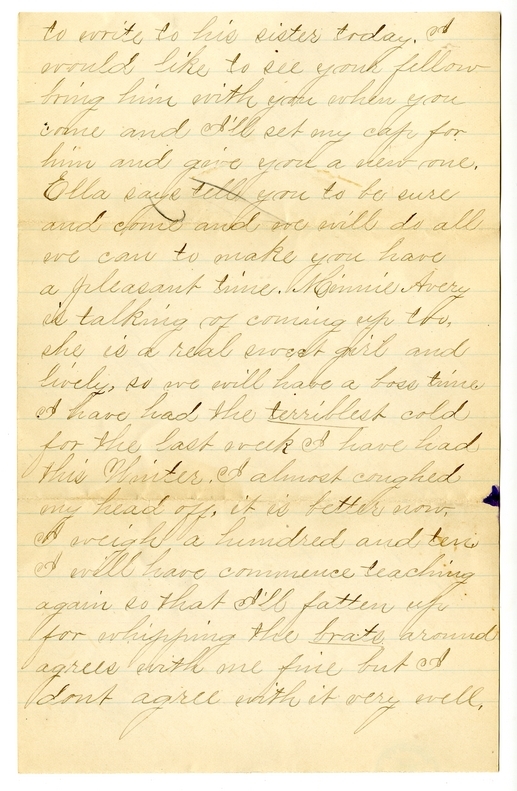 to write to his sister today. I
would like to see your fellow
bring him with you when you
come and I'll set my cap for
him and give you a new one.
Ella says tell you to be sure
and come and we will do all
we can to make you have
a pleasant time. Minnie Avery
is talking of coming up too,
she is a real sweet girl and
lively, so we will have a boss time
I have had the terriblest cold
for the last week I have had
this Winter. I almost coughed
my head off, it is better now
I weigh a hundred and ten.
I will have commence teaching
again so that I'll fatten up
for whipping the brats around
agrees with me fine but I
dont agree with it very well.